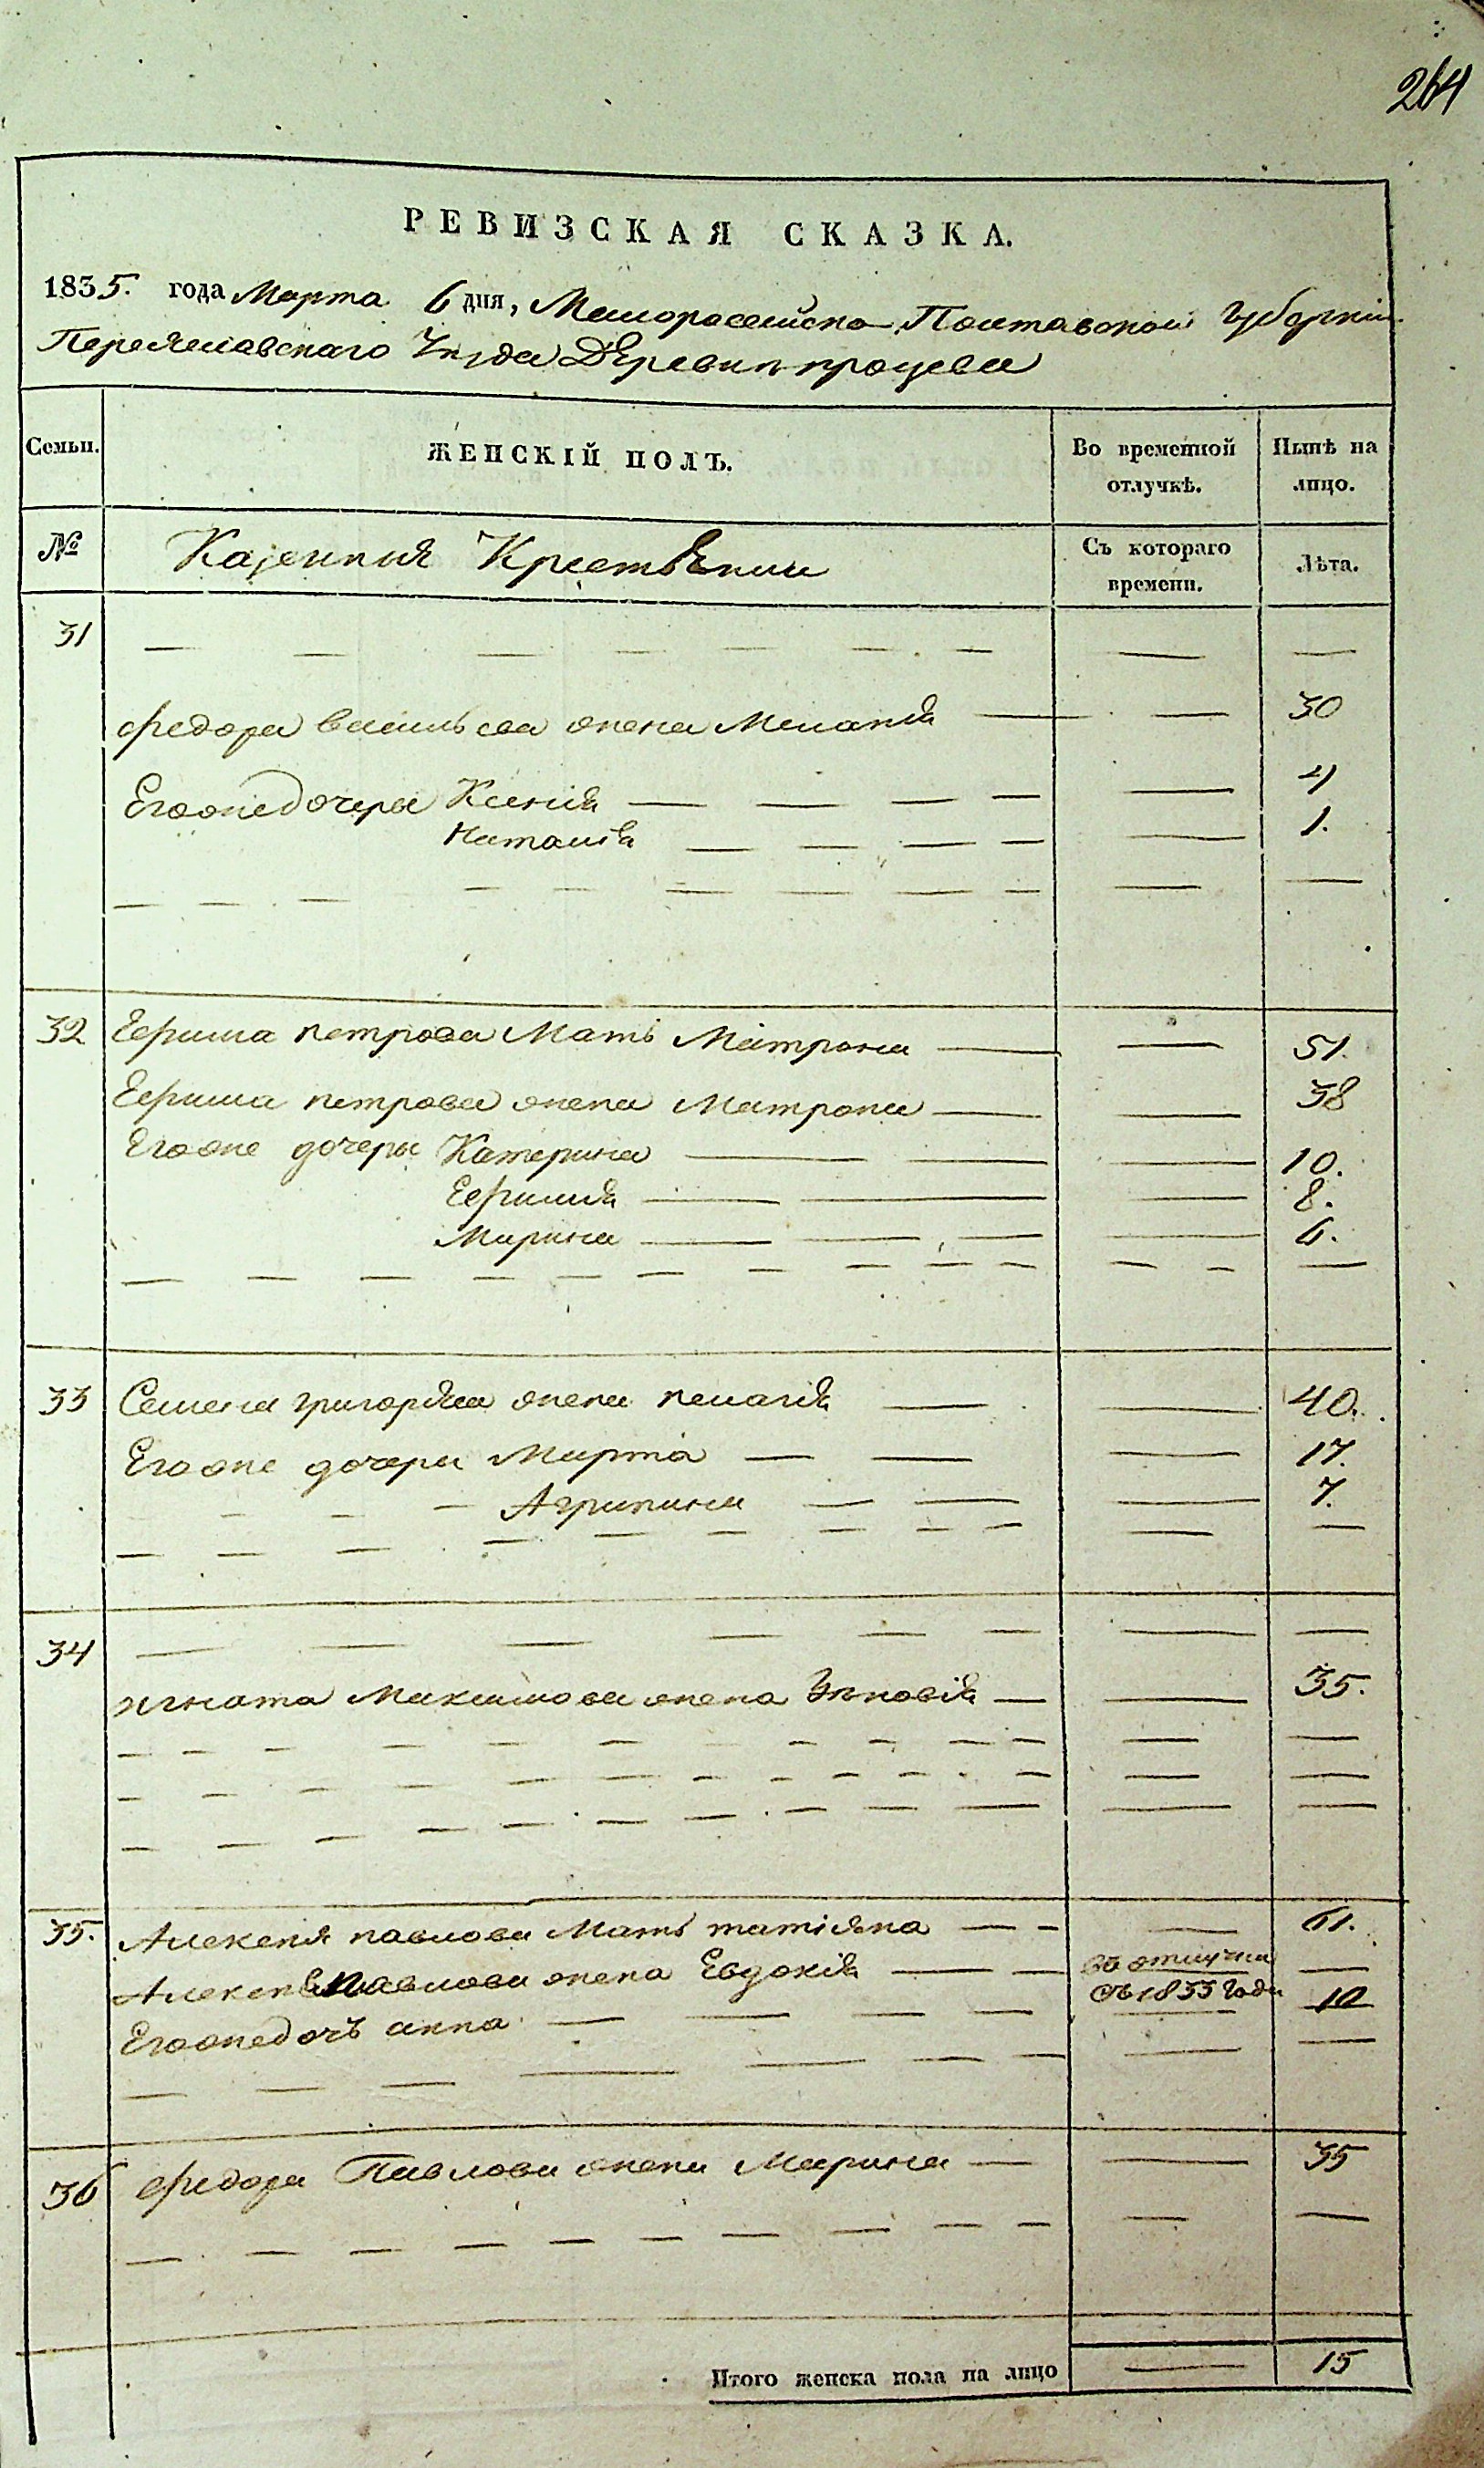 264
РЕВИЗСКАЯ СКАЗКА.
1835. года Марта 6 дня, Малоросейско Полтавской Губерніи
Переяславскаго уезда Деревни процева
Семьи. ЖЕНСКІЙ ПОЛЪ. Во временной отлучкѣ. Нынѣ на лицо.
№ Казенныя Крестьянки Съ котораго времени. Лѣта.
31
федора васильева жена Меланія 30
Егожедочери Ксенія 4
Наталія 1.
32 Ефима петрова Мать Матрона 51.
Ефима петрова жена Матрона 38
Егоже дочеры Катерина 10.
Ефимия 8.
Марина 6.
33 Семена григорева жена пелагія 40.
Егоже дочери Марта 17.
Агрипина 7.
34
игната Максимова жена Зѣновія 35.
35. Алексея павлова Мать татіяна 61.
Алексея Павлова жена Евдокія во отлучки
съ 1833 года
Егожедочь анна 10
36 федора Павлова жена Марина 35
Итого женска пола на лицо 15